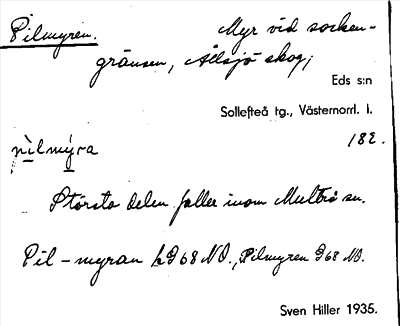 Pilmyren.
Myr vid socken-
gränsen, Ållsjö skog;
Eds s:n
Sollefteå tg., Västernorrl. l.
182.
pìlmy̱ra
Största delen faller inom Multrå sn.
Pil-myran LD 68 NO., Pilmyren G 68 NO.
Sven Hiller 1935.